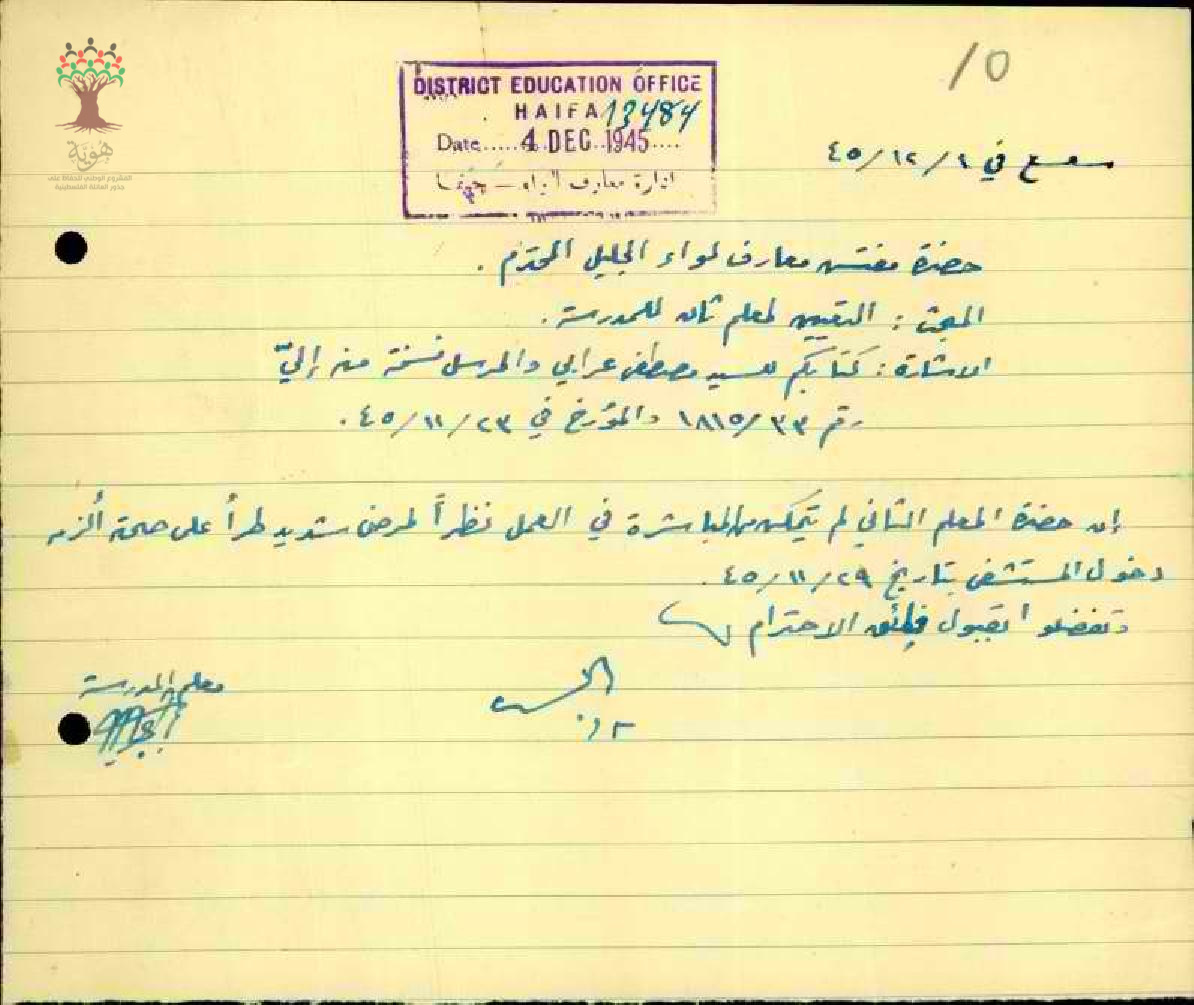 هوية
المشروع الوطني للحفاظ على
جذور العائلة الفلسطينية
10
DISTRICT EDUCATION OFFICE
HAIFA 13484
Date..... 4 DEC 1945....
ادارة معارف اللواء – حيفا
سعسع في ١/١٢/٤٥
حضرة مفتش معارف لواء الجليل المحترم .
المبحث : التعيين لمعلم ثان للمدرسة .
الاشارة : كتابكم للسيد مصطفى عرابي والمرسل نسخة منه إليّ
رقم ١٨١٥/٣٣ والمؤرخ في ٢٣/١١/٤٥ .
إن حضرة المعلم الثاني لم يتمكن من المباشرة في العمل نظراً لمرض شديد طرأ على صحته ألزمه
دخول المستشفى بتاريخ ٢٩/١١/٤٥ .
وتفضلوا بقبول فائق الاحترام
معلم المدرسة